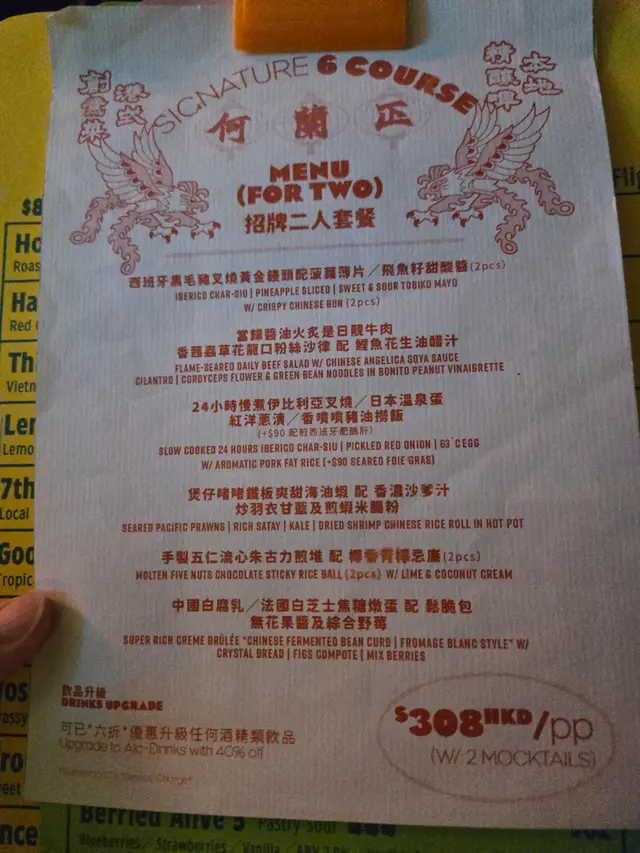 創意菜
港式
SIGNATURE 6 COURSE
精釀啤
本地
何蘭正
MENU
(FOR TWO)
招牌二人套餐
西班牙黑毛豬叉燒黃金饅頭配菠蘿薄片／飛魚籽甜酸醬(2pcs)
IBERICO CHAR-SIU | PINEAPPLE SLICED | SWEET & SOUR TOBIKO MAYO
W/ CRISPY CHINESE BUN (2pcs)
當歸醬油火炙是日靚牛肉
香茜蟲草花龍口粉絲沙律 配 鰹魚花生油醋汁
FLAME-SEARED DAILY BEEF SALAD W/ CHINESE ANGELICA SOYA SAUCE
CILANTRO | CORDYCEPS FLOWER & GREEN BEAN NOODLES IN BONITO PEANUT VINAIGRETTE
24小時慢煮伊比利亞叉燒／日本溫泉蛋
紅洋蔥漬／香噴噴豬油撈飯
(+$90 配煎西班牙肥鵝肝)
SLOW COOKED 24 HOURS IBERICO CHAR-SIU | PICKLED RED ONION | 63°C EGG
W/ AROMATIC PORK FAT RICE (+$90 SEARED FOIE GRAS)
煲仔啫啫鐵板爽甜海油蝦 配 香濃沙爹汁
炒羽衣甘藍及煎蝦米腸粉
SEARED PACIFIC PRAWNS | RICH SATAY | KALE | DRIED SHRIMP CHINESE RICE ROLL IN HOT POT
手製五仁流心朱古力煎堆 配 椰香青檸忌廉(2pcs)
MOLTEN FIVE NUTS CHOCOLATE STICKY RICE BALL (2pcs) W/ LIME & COCONUT CREAM
中國白腐乳／法國白芝士焦糖燉蛋 配 鬆脆包
無花果醬及綜合野莓
SUPER RICH CREME BRÛLÉE "CHINESE FERMENTED BEAN CURD | FROMAGE BLANC STYLE" W/
CRYSTAL BREAD | FIGS COMPOTE | MIX BERRIES
飲品升級
DRINKS UPGRADE
可已"六折"優惠升級任何酒精類飲品
Upgrade to Alc-Drinks with 40% off
$308HKD/pp
(W/ 2 MOCKTAILS)
Berried Alive 5 Pastry Sour
Blueberries Strawberries Vanilla